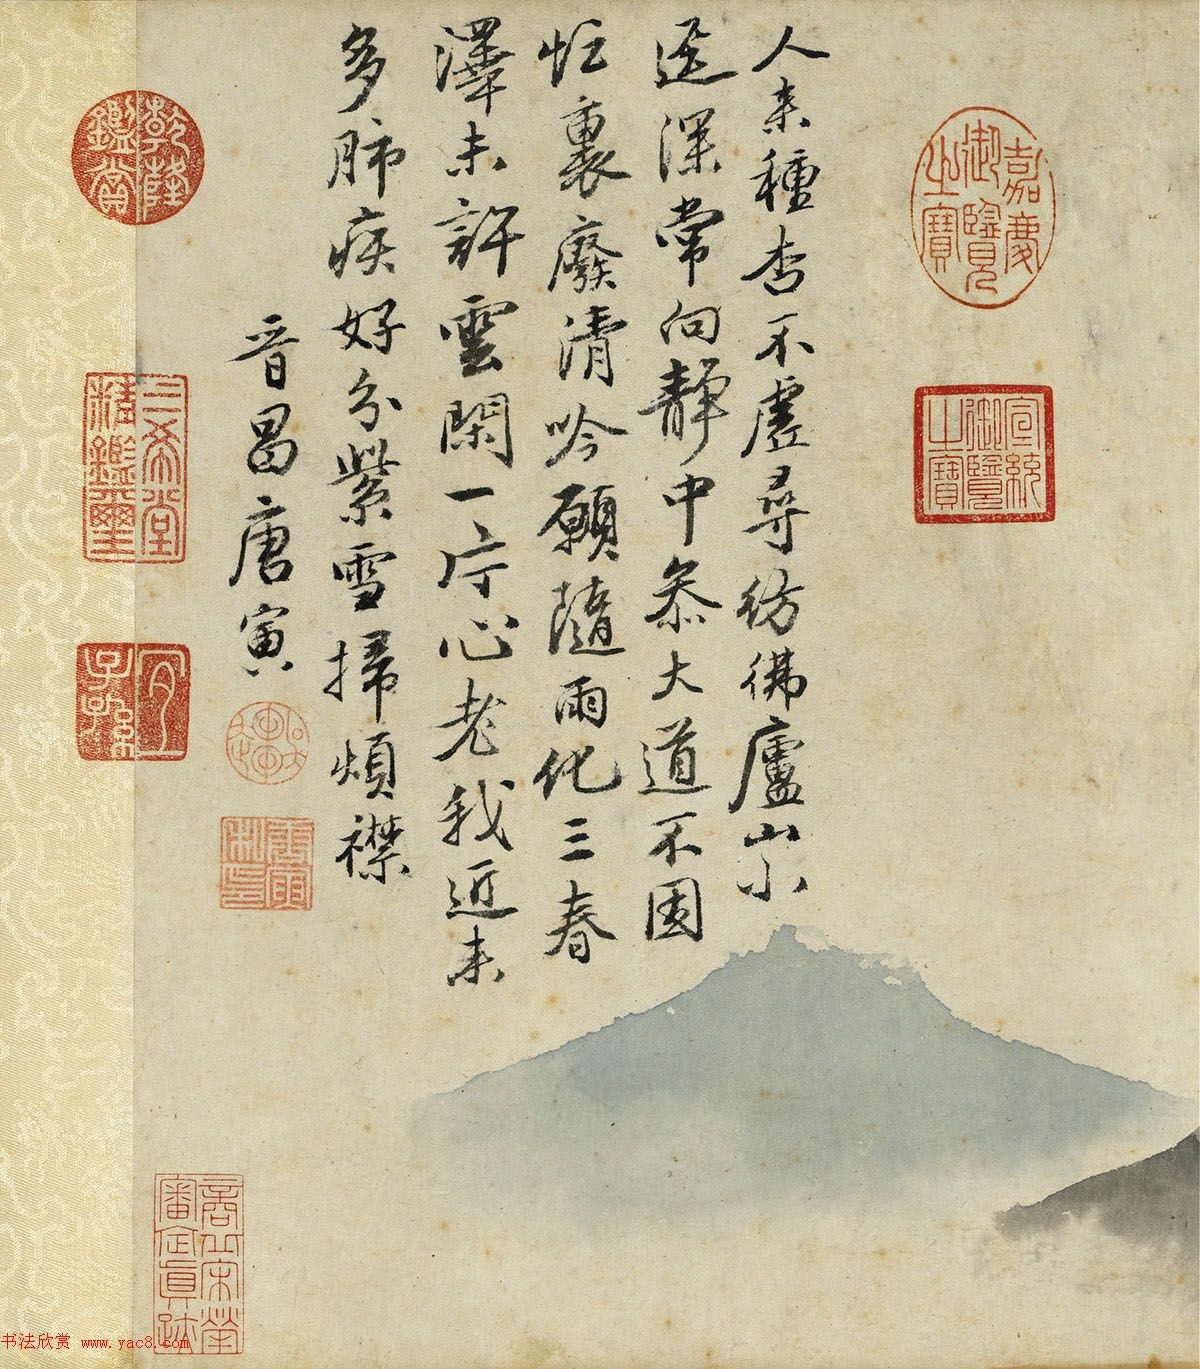 嘉慶御覽之寶
宣統御覽之寶
人来種杏不虚尋彷彿廬山小
逕深常向靜中叅大道不因
忙裏廢清吟願隨雨化三春
澤未許雲閑一片心老我近来
多肺疾好分紫雪掃煩襟
晋昌唐寅
乾隆鑑賞
三希堂精鑑璽
宜子孫
商丘宋犖審定真跡
书法欣赏 www.yac8.com